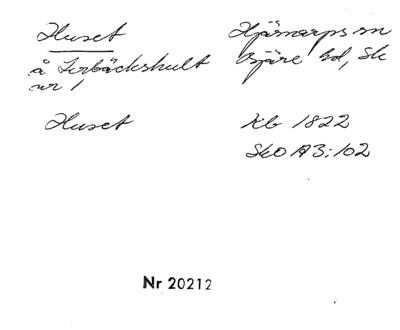 Huset
å Lerbäckshult
nr 1
Hjärnarps sn
Bjäre hd, Sk
Huset
Kb 1822
SkO A3:102
Nr 20212